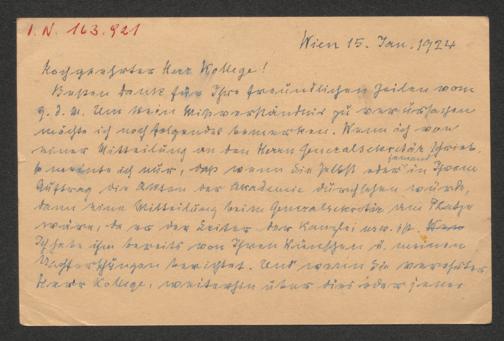 I. N. 163.921
Wien 15. Jan. 1924
Hochgeehrter Herr Kollege!
Besten Dank für Ihre freundlichen Zeilen vom
9. d. M. Um kein Mißverständnis zu verursachen
möchte ich noch folgendes bemerken. Wenn ich von
einer Mitteilung an den Herrn Generalsekretär schrieb,
so meinte ich nur, daß wenn Sie selbst oder jemand in Ihrem
Auftrag die Akten der Akademie durchsehen würde,
dann eine Mitteilung beim Generalsekretär am Platze
wäre, da er der Leiter der Kanzlei usw. ist.
Ich habe ihm bereits von Ihren Wünschen u. meinen
Nachforschungen berichtet. Und wenn Sie, verehrter
Herr Kollege, weiterhin über dies oder jenes